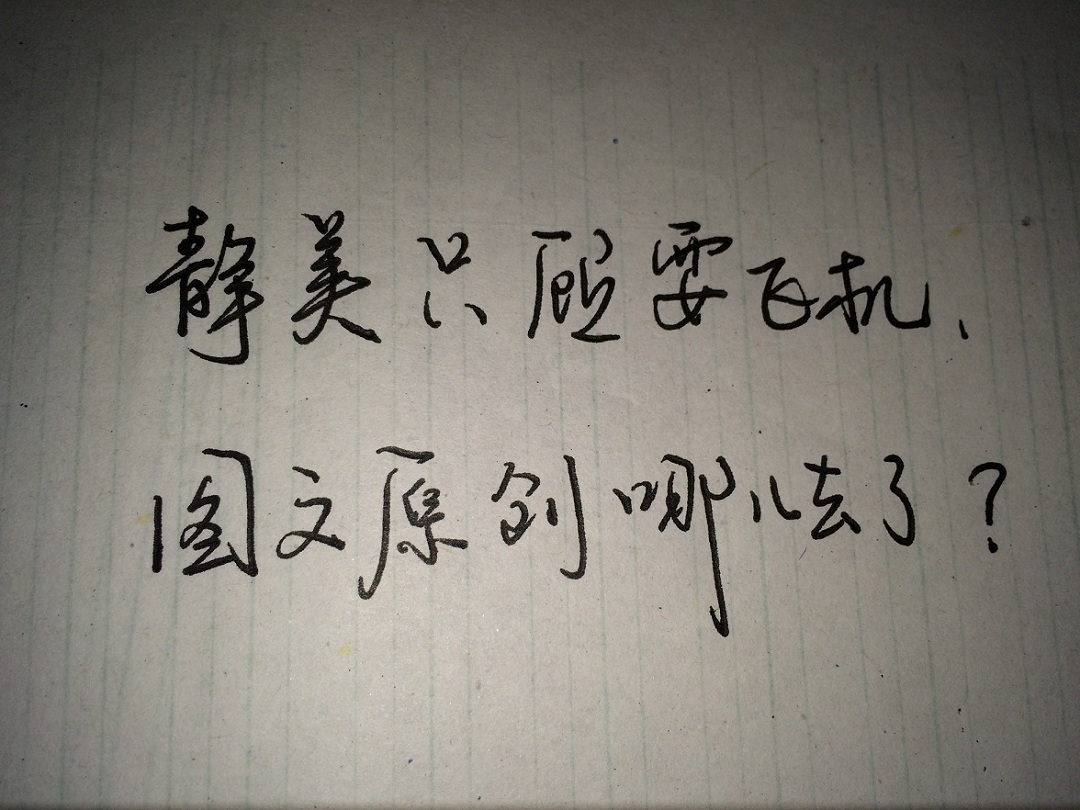 静美只顾耍飞机，
图文原创哪儿去了？